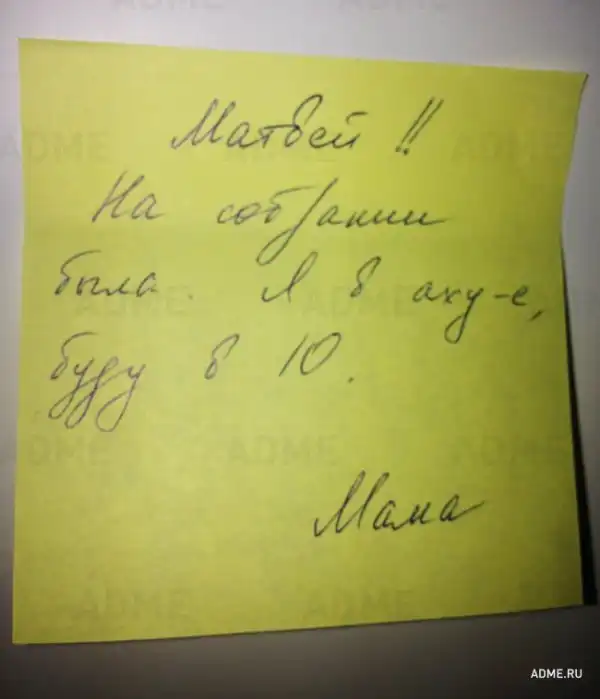 Матвей!!
На собрании
была. Я в аху-е,
буду в 10.
Мама
ADME.RU